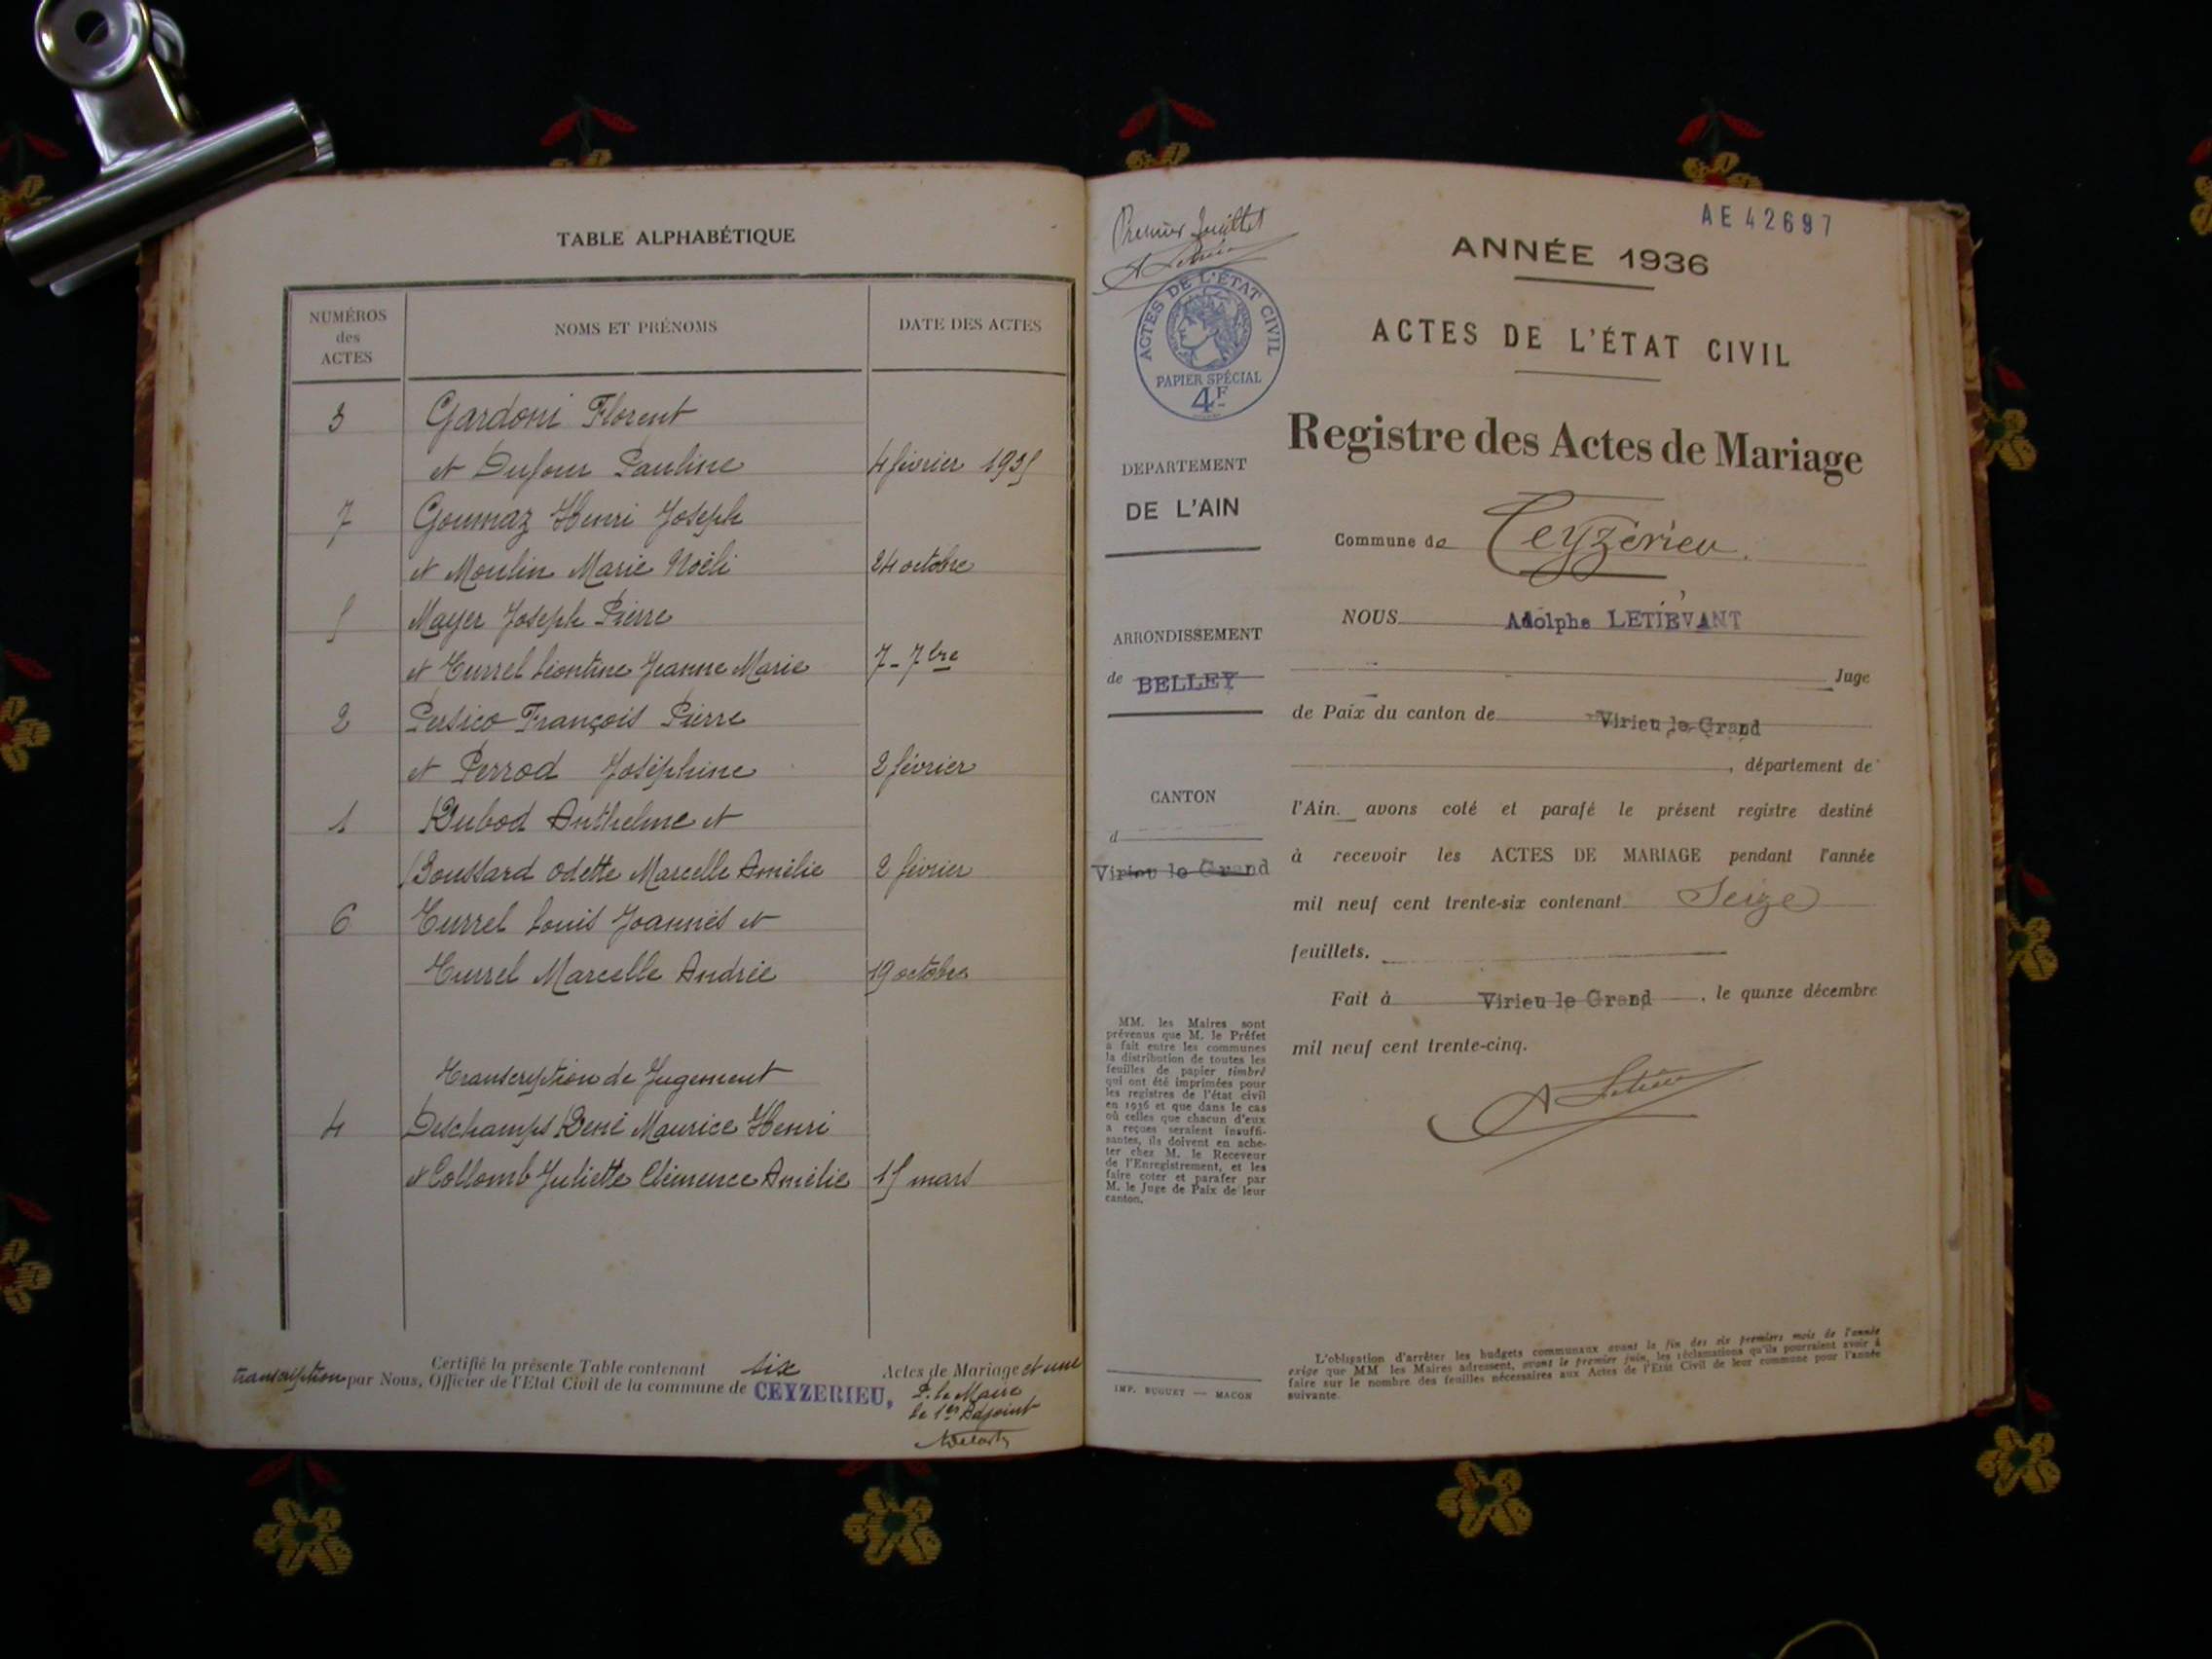 TABLE ALPHABÉTIQUE
NUMÉROS
des
ACTES
NOMS ET PRÉNOMS
DATE DES ACTES
3 Gardoni Florent
et Dufour Pauline 4 février 1935
7 Goumaz Henri Joseph
et Moulin Marie Noëli 24 octobre
5 Mayer Joseph Pierre
et Turrel Léontine Jeanne Marie 7-7bre
2 Persico François Pierre
et Perrod Joséphine 2 février
1 Rubod Anthelme et
Boussard Odette Marcelle Amélie 2 février
6 Turrel Louis Joannès et
Turrel Marcelle Andrée 19 octobre
Transcription de Jugement
4 Deschamps René Maurice Henri
et Collomb Juliette Clémence Amélie 15 mars
Certifié la présente Table contenant six Actes de Mariage et une
transcription par Nous, Officier de l'Etat Civil de la commune de CEYZERIEU,
P. le Maire
le 1er Adjoint
Premier feuillet
ACTES DE L'ÉTAT CIVIL
PAPIER SPÉCIAL
4F
DEPARTEMENT
DE L'AIN
ARRONDISSEMENT
de BELLEY
CANTON
d
Virieu le Grand
MM. les Maires sont
prévenus que M. le Préfet
a fait entre les communes
la distribution de toutes les
feuilles de papier timbré
qui ont été imprimées pour
les registres de l'état civil
en 1936 et que dans le cas
où celles que chacun d'eux
a reçues seraient insuffi-
santes, ils doivent en ache-
ter chez M. le Receveur
de l'Enregistrement, et les
faire coter et parafer par
M. le Juge de Paix de leur
canton.
IMP. BUGUET — MACON
AE 42697
ANNÉE 1936
ACTES DE L'ÉTAT CIVIL
Registre des Actes de Mariage
Commune de Ceyzérieu.
NOUS Adolphe LETIEVANT
Juge
de Paix du canton de Virieu le Grand
, département de
l'Ain. avons coté et parafé le présent registre destiné
à recevoir les ACTES DE MARIAGE pendant l'année
mil neuf cent trente-six contenant Seize
feuillets.
Fait à Virieu le Grand, le quinze décembre
mil neuf cent trente-cinq.
L'obligation d'arrêter les budgets communaux avant la fin des six premiers mois de l'année
exige que MM les Maires adressent, avant le premier juin, les réclamations qu'ils pourraient avoir à
faire sur le nombre des feuilles nécessaires aux Actes de l'Etat Civil de leur commune pour l'année
suivante.